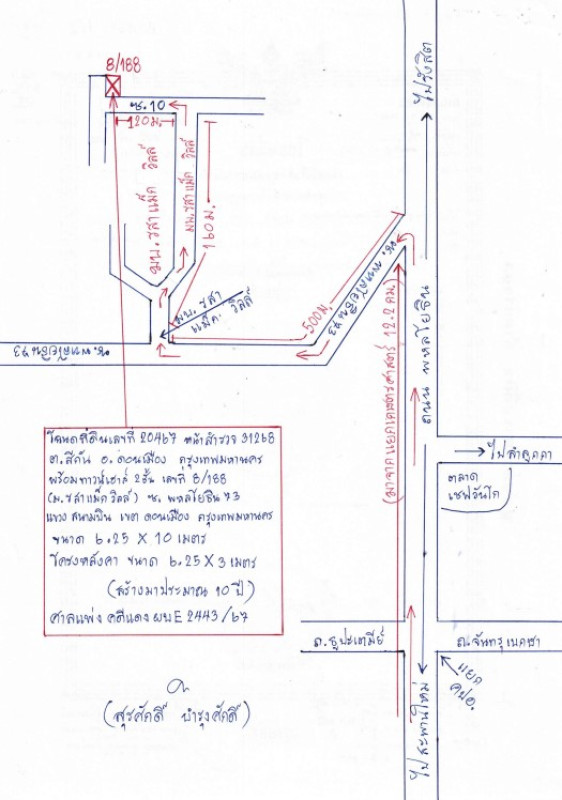 8/188
ซ.10
120ม.
มบ.รสาแม็ค วิลล์
มบ.รสาแม็ค วิลล์
160ม.
ไปรังสิต
มบ. รสา
แม็ค. วิลล์
500ม.
ซ.พหลโยธิน 73
ซ.พหลโยธิน 73
(มาจากแยกเกษตรศาสตร์ 12.2 กม.)
ถนน พหลโยธิน
ไปลำลูกกา
ตลาด
เซฟวันโก
โฉนดที่ดินเลขที่ 20467 หน้าสำรวจ 31268
ต.สีกัน อ.ดอนเมือง กรุงเทพมหานคร
พร้อมทาวน์เฮาส์ 2ชั้น เลขที่ 8/188
(ม.รสาแม็ค วิลล์) ซ. พหลโยธิน 73
แขวง สนามบิน เขต ดอนเมือง กรุงเทพมหานคร
ขนาด 6.25 X 10 เมตร
โครงหลังคา ขนาด 6.25 X 3 เมตร
(สร้างมาประมาณ 10 ปี)
ศาลแพ่ง คดีแดง ผบE 2443/67
ถ.ธูปะเตมีย์
ถ.จันทรุเบกษา
แยก
คปอ.
ไปสะพานใหม่
(สุรศักดิ์ บำรุงศักดิ์)